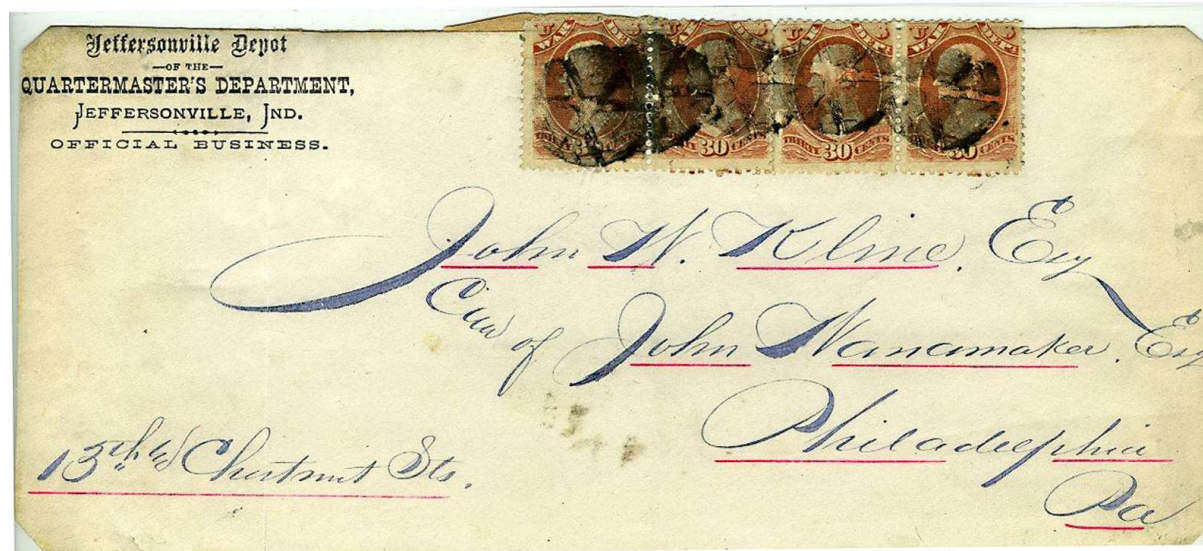 Jeffersonville Depot
—OF THE—
QUARTERMASTER'S DEPARTMENT,
JEFFERSONVILLE, IND.
OFFICIAL BUSINESS.
U S WAR DEP'T
THIRTY 30 CENTS
John W. Kline, Esq
Care of John Wanamaker, Esq
Philadelphia
Pa
13th & Chestnut Sts.